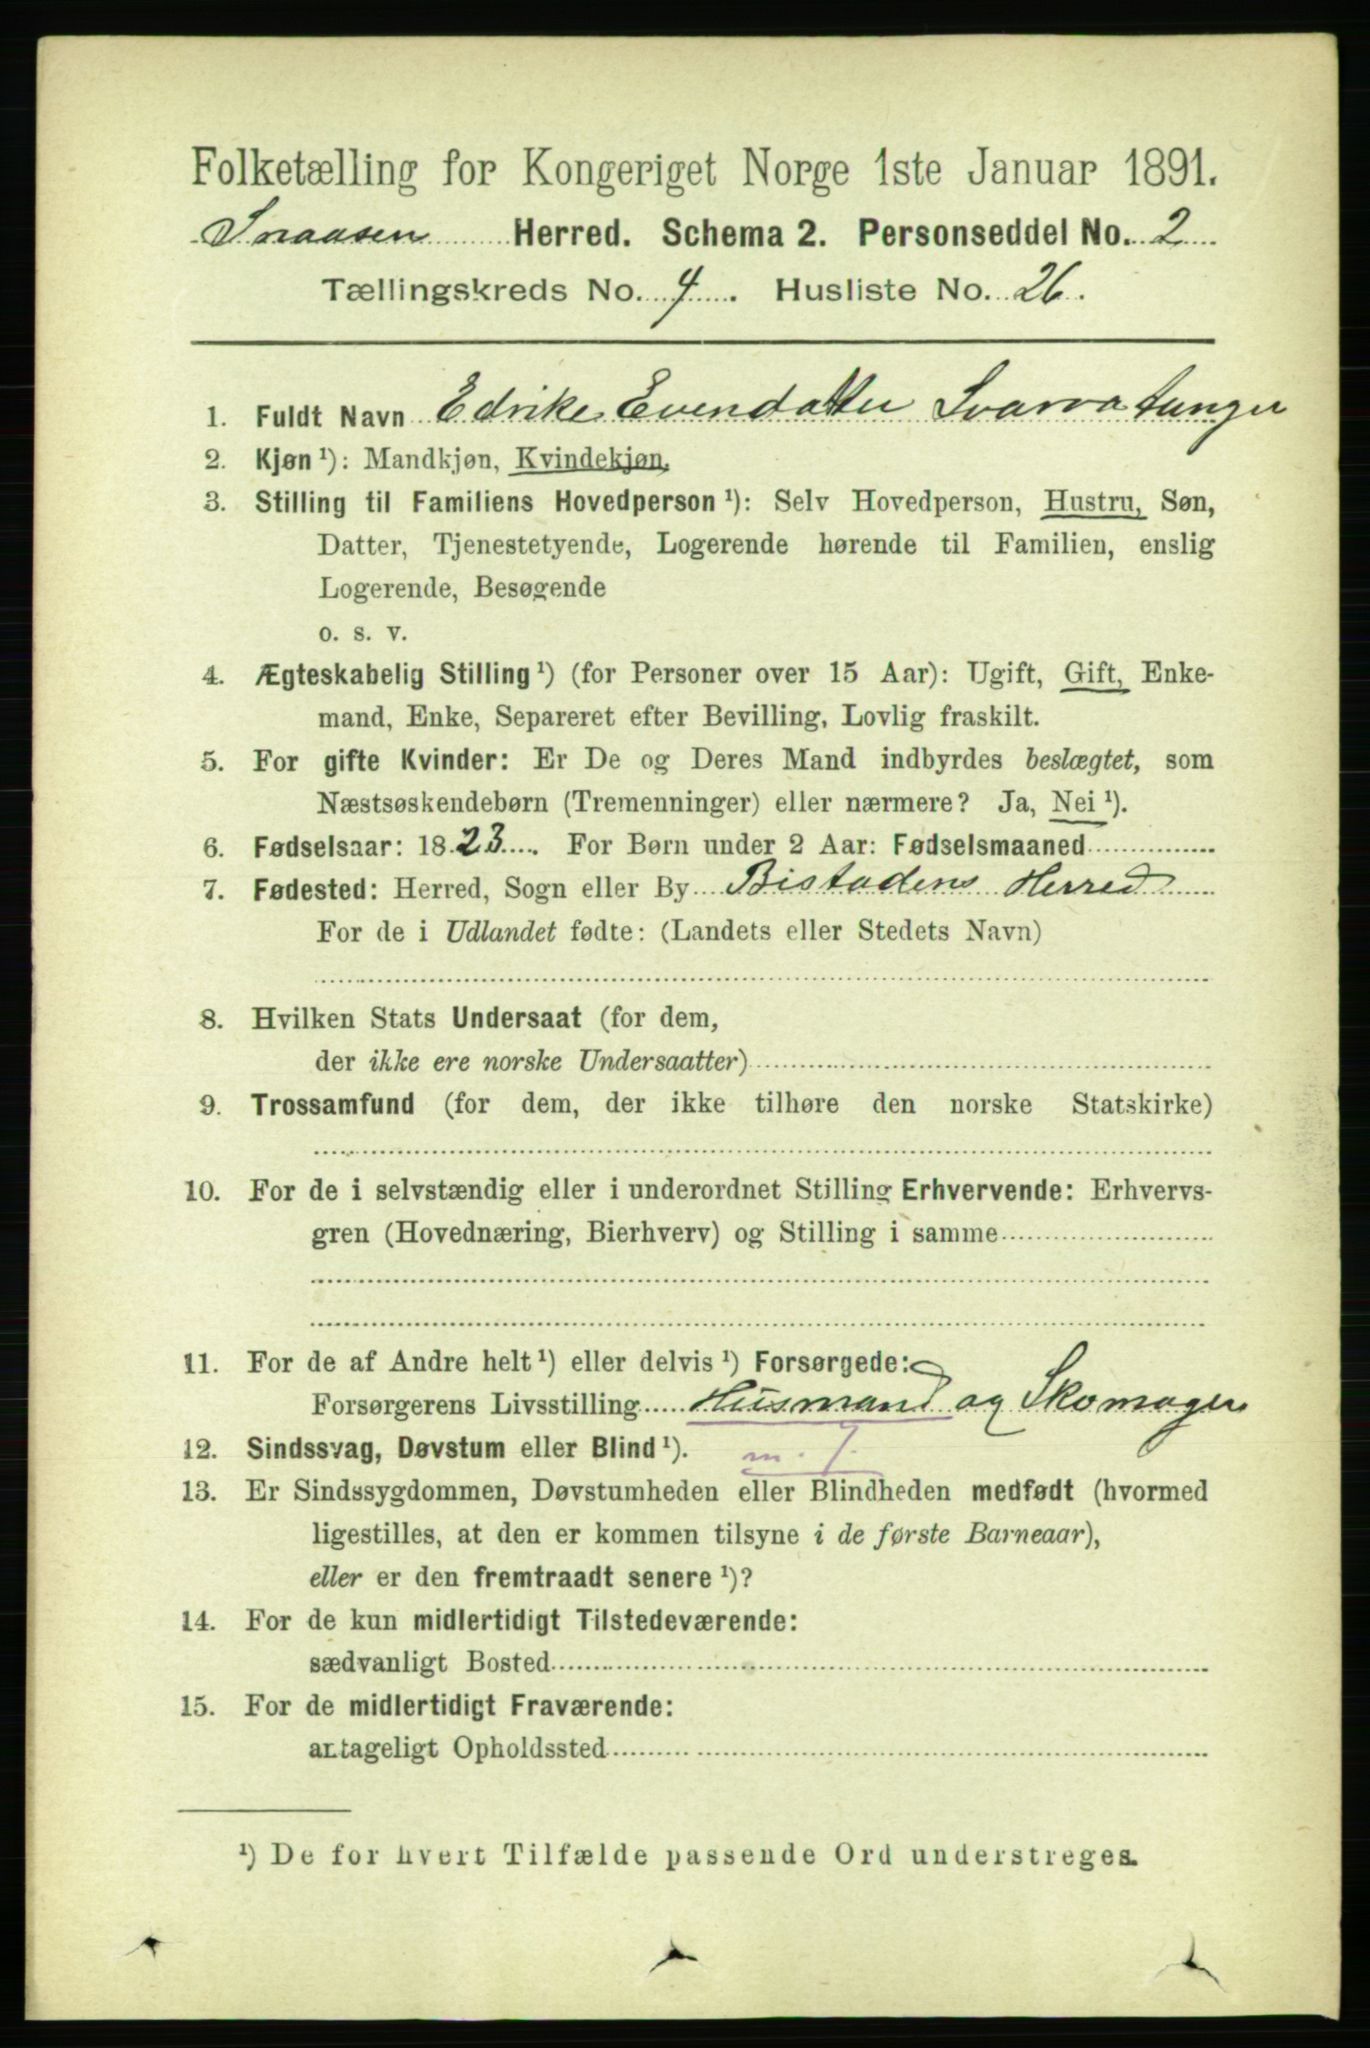 Folketælling for Kongeriget Norge 1ste Januar 1891.
Snaasen Herred. Schema 2. Personseddel No. 2
Tællingskreds No. 4. Husliste No. 26.
1. Fuldt Navn Edrike Evendatter Svarvatunger
2. Kjøn ¹): Mandkjøn, Kvindekjøn.
3. Stilling til Familiens Hovedperson ¹): Selv Hovedperson, Hustru, Søn,
Datter, Tjenestetyende, Logerende hørende til Familien, enslig
Logerende, Besøgende
o. s. v.
4. Ægteskabelig Stilling ¹) (for Personer over 15 Aar): Ugift, Gift, Enke-
mand, Enke, Separeret efter Bevilling, Lovlig fraskilt.
5. For gifte Kvinder: Er De og Deres Mand indbyrdes beslægtet, som
Næstsøskendebørn (Tremenninger) eller nærmere? Ja, Nei ¹).
6. Fødselsaar: 1823. For Børn under 2 Aar: Fødselsmaaned
7. Fødested: Herred, Sogn eller By Bistadens Herred
For de i Udlandet fødte: (Landets eller Stedets Navn)
8. Hvilken Stats Undersaat (for dem,
der ikke ere norske Undersaatter)
9. Trossamfund (for dem, der ikke tilhøre den norske Statskirke)
10. For de i selvstændig eller i underordnet Stilling Erhvervende: Erhvervs-
gren (Hovednæring, Bierhverv) og Stilling i samme
11. For de af Andre helt ¹) eller delvis ¹) Forsørgede:
Forsørgerens Livsstilling Husmand og Skomager
12. Sindssvag, Døvstum eller Blind ¹). m. J.
13. Er Sindssygdommen, Døvstumheden eller Blindheden medfødt (hvormed
ligestilles, at den er kommen tilsyne i de første Barneaar),
eller er den fremtraadt senere ¹)?
14. For de kun midlertidigt Tilstedeværende:
sædvanligt Bosted
15. For de midlertidigt Fraværende:
antageligt Opholdssted
¹) De for hvert Tilfælde passende Ord understreges.